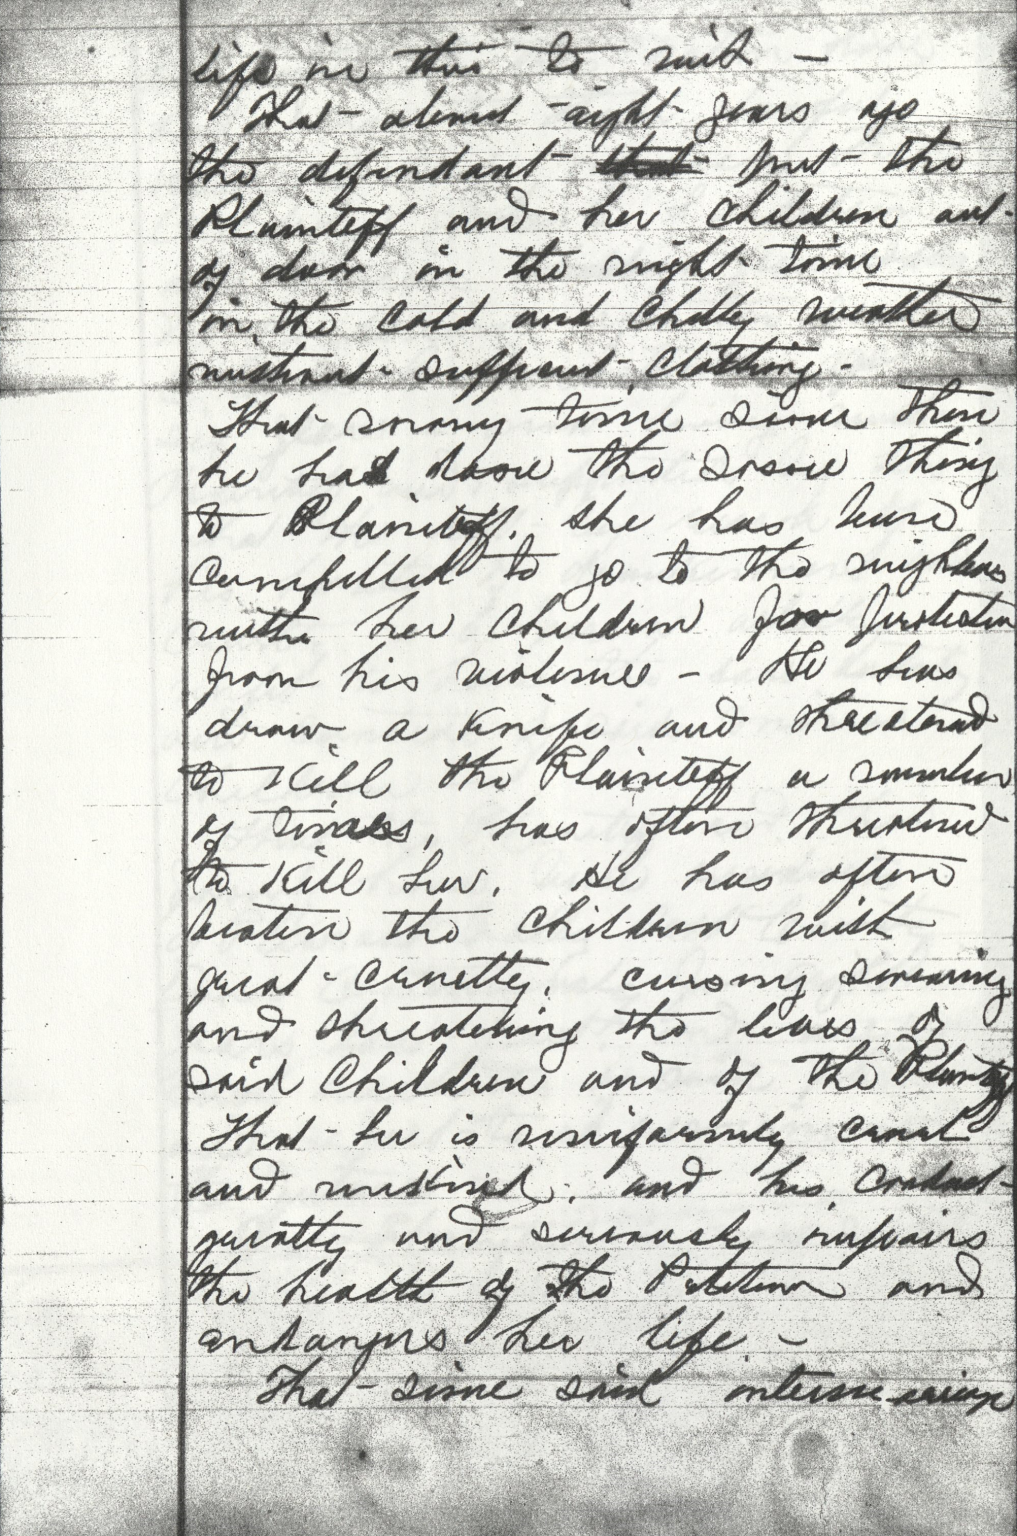 life in this to wit —
That about eight years ago
the defendant that put the
Plaintiff and her children out
of door in the night time
in the cold and chilly weather
without sufficient clothing -
That many time since then
he had done the same thing
to Plaintiff. She has been
compelled to go to the neighbors
with her children for protection
from his violence - He has
draw a knife and threatened
to kill the Plaintiff a number
of times, has often threatened
to kill her. He has often
beaten the children with
great cruelty, cursing swearing
and threatening the lives of
said children and of the Plaintiff
That he is uniformily cruel
and unkind, and his conduct
greatly and seriously impairs
the health of the Petitioner and
endangers her life -
That since said intermarriage